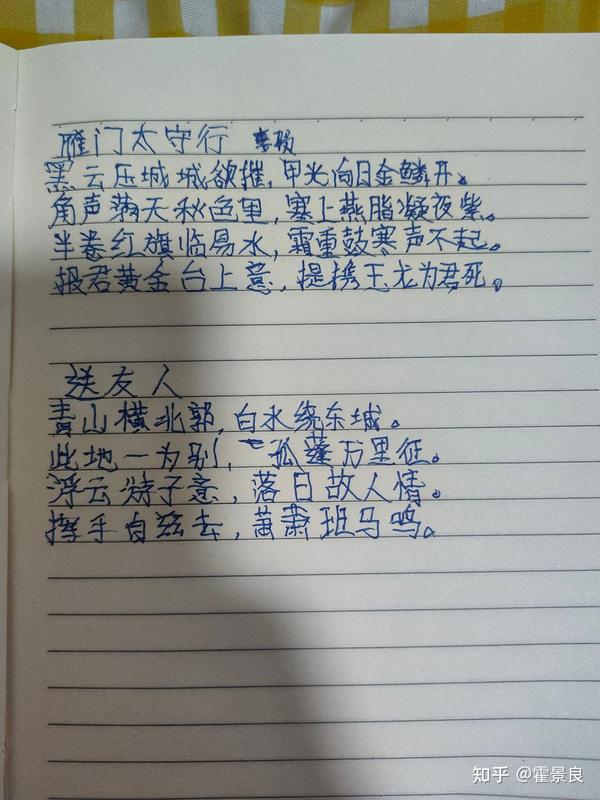 雁门太守行 李贺
黑云压城城欲摧,甲光向日金鳞开。
角声满天秋色里,塞上燕脂凝夜紫。
半卷红旗临易水,霜重鼓寒声不起。
报君黄金台上意,提携玉龙为君死。
送友人
青山横北郭,白水绕东城。
此地一为别,孤蓬万里征。
浮云游子意,落日故人情。
挥手自兹去,萧萧班马鸣。
知乎 @霍景良